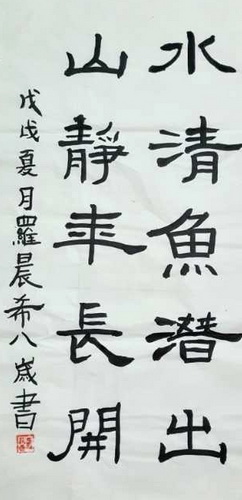 水清魚潛出
山靜年長開
戊戌夏月羅晨希八歲書